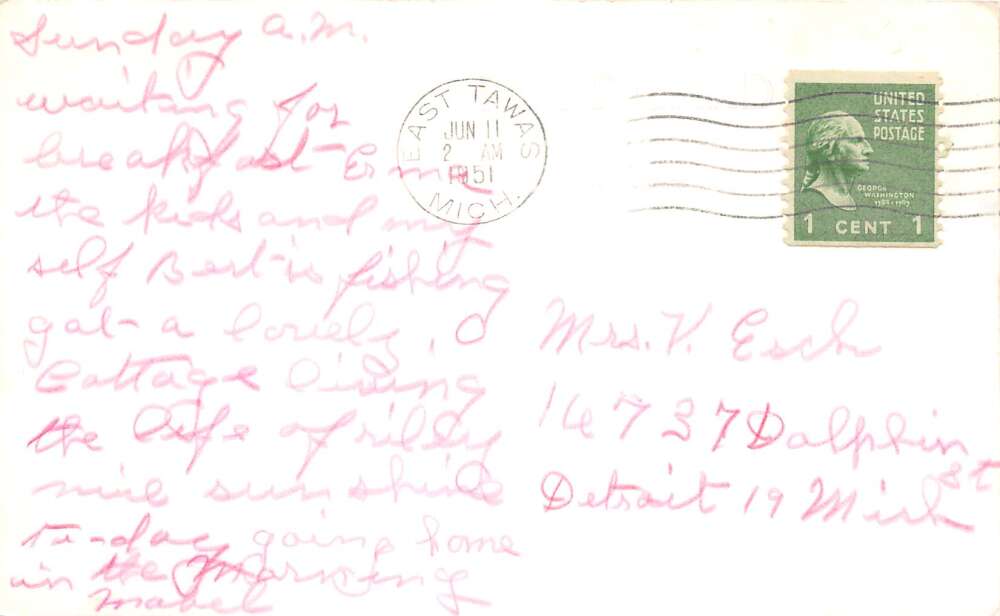 Sunday A.M.
waiting for
breakfast - Erma
the kids and my
self Bert is fishing
got a lovely
Cottage living
the life of riley
nice sunshine
to-day going home
in the Morning
Mabel
EAST TAWAS
JUN 11
2 AM
1951
MICH.
UNITED
STATES
POSTAGE
GEORGE
WASHINGTON
1789-1797
1 CENT 1
Mrs. V. Esch
16737 Dolphin
st
Detroit 19 Mich